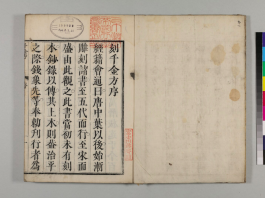 刻千金方序
經籍會通曰唐中葉以後始漸
雕刻諸書至五代而行至宋而
盛由此觀之此書當初未有刻
本鈔錄以傳其上木則治平
之際錢象先等奉勅刊行者爲